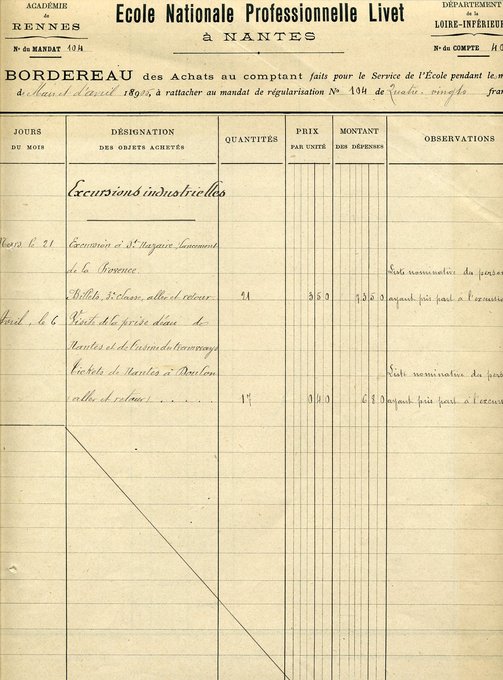 ACADÉMIE
de
RENNES
N° du MANDAT 104
Ecole Nationale Professionnelle Livet
à NANTES
DÉPARTEMENT
de la
LOIRE-INFÉRIEUR
N° du COMPTE 40
BORDEREAU des Achats au comptant faits pour le Service de l'École pendant le m
de Mars et d'avril 189, à rattacher au mandat de régularisation N° 104 de Quatre-vingts fran
JOURS
DU MOIS
DÉSIGNATION
DES OBJETS ACHETÉS
QUANTITÉS
PRIX
PAR UNITÉ
MONTANT
DES DÉPENSES
OBSERVATIONS
Excursions industrielles
Mars, le 21 Excursion à St Nazaire, lancement
de la Provence. Liste nominative des person
Billets, 3e classe, aller et retour 21 3 50 73 50 ayant pris part à l'excursi
Avril, le 6 Visite de la prise d'eau de
Nantes et de l'usine du tramways
Tickets de Nantes à Doulon Liste nominative des pers
(aller et retour) . . . . . 17 0 40 6 80 ayant pris part à l'excurs